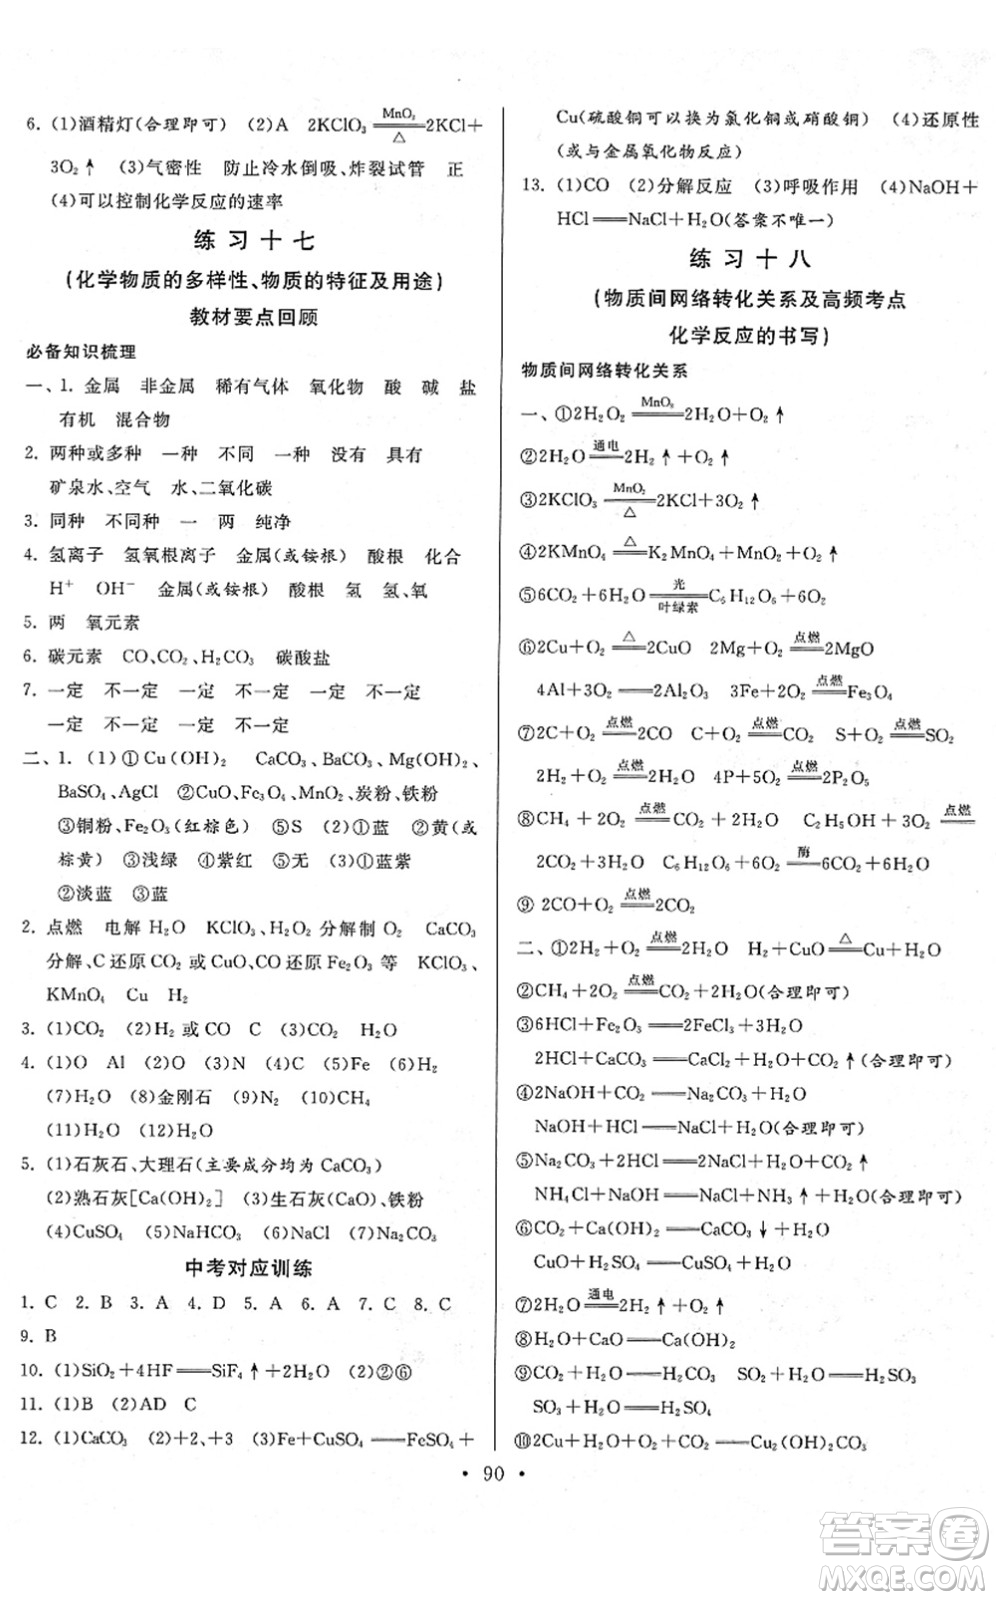 6. (1)酒精灯(合理即可) (2)A 2KClO₃ MnO₂ ══ △ 2KCl+
3O₂↑ (3)气密性 防止冷水倒吸、炸裂试管 正
(4)可以控制化学反应的速率
练习十七
(化学物质的多样性、物质的特征及用途)
教材要点回顾
必备知识梳理
一、1. 金属 非金属 稀有气体 氧化物 酸 碱 盐
有机 混合物
2. 两种或多种 一种 不同 一种 没有 具有
矿泉水、空气 水、二氧化碳
3. 同种 不同种 一 两 纯净
4. 氢离子 氢氧根离子 金属(或铵根) 酸根 化合
H⁺ OH⁻ 金属(或铵根) 酸根 氢 氢、氧
5. 两 氧元素
6. 碳元素 CO、CO₂、H₂CO₃ 碳酸盐
7. 一定 不一定 一定 不一定 一定 不一定
一定 不一定 一定 不一定
二、1. (1)①Cu(OH)₂ CaCO₃、BaCO₃、Mg(OH)₂、
BaSO₄、AgCl ②CuO、Fe₃O₄、MnO₂、炭粉、铁粉
③铜粉、Fe₂O₃(红棕色) ⑤S (2)①蓝 ②黄(或
棕黄) ③浅绿 ④紫红 ⑤无 (3)①蓝紫
②淡蓝 ③蓝
2. 点燃 电解 H₂O KClO₃、H₂O₂ 分解制 O₂ CaCO₃
分解、C 还原 CO₂ 或 CuO、CO 还原 Fe₂O₃ 等 KClO₃、
KMnO₄ Cu H₂
3. (1)CO₂ (2)H₂ 或 CO C (3)CO₂ H₂O
4. (1)O Al (2)O (3)N (4)C (5)Fe (6)H₂
(7)H₂O (8)金刚石 (9)N₂ (10)CH₄
(11)H₂O (12)H₂O
5. (1)石灰石、大理石(主要成分均为 CaCO₃)
(2)熟石灰[Ca(OH)₂] (3)生石灰(CaO)、铁粉
(4)CuSO₄ (5)NaHCO₃ (6)Na₂CO₃
中考对应训练
1. C 2. B 3. A 4. D 5. A 6. A 7. C 8. C
9. B
10. (1)SiO₂+4HF══SiF₄↑+2H₂O (2)②⑥
11. (1)B (2)AD C
12. (1)CaCO₃ (2)+2、+3 (3)Fe+CuSO₄══FeSO₄+
Cu(硫酸铜可以换为氯化铜或硝酸铜) (4)还原性
(或与金属氧化物反应)
13. (1)CO (2)分解反应 (3)呼吸作用 (4)NaOH+
HCl══NaCl+H₂O(答案不唯一)
练习十八
(物质间网络转化关系及高频考点
化学反应的书写)
物质间网络转化关系
一、①2H₂O₂ MnO₂ ══ 2H₂O+O₂↑
②2H₂O 通电 ══ 2H₂↑+O₂↑
③2KClO₃ MnO₂ ══ △ 2KCl+3O₂↑
④2KMnO₄ △ ══ K₂MnO₄+MnO₂+O₂↑
⑤6CO₂+6H₂O 光 ══ 叶绿素 C₆H₁₂O₆+6O₂
⑥2Cu+O₂ △ ══ 2CuO 2Mg+O₂ 点燃 ══ 2MgO
4Al+3O₂══2Al₂O₃ 3Fe+2O₂ 点燃 ══ Fe₃O₄
⑦2C+O₂ 点燃 ══ 2CO C+O₂ 点燃 ══ CO₂ S+O₂ 点燃 ══ SO₂
2H₂+O₂ 点燃 ══ 2H₂O 4P+5O₂ 点燃 ══ 2P₂O₅
⑧CH₄+2O₂ 点燃 ══ CO₂+2H₂O C₂H₅OH+3O₂ 点燃 ══
2CO₂+3H₂O C₆H₁₂O₆+6O₂ 酶 ══ 6CO₂+6H₂O
⑨ 2CO+O₂ 点燃 ══ 2CO₂
二、①2H₂+O₂ 点燃 ══ 2H₂O H₂+CuO △ ══ Cu+H₂O
②CH₄+2O₂ 点燃 ══ CO₂+2H₂O(合理即可)
③6HCl+Fe₂O₃══2FeCl₃+3H₂O
2HCl+CaCO₃══CaCl₂+H₂O+CO₂↑(合理即可)
④2NaOH+CO₂══Na₂CO₃+H₂O
NaOH+HCl══NaCl+H₂O(合理即可)
⑤Na₂CO₃+2HCl══2NaCl+H₂O+CO₂↑
NH₄Cl+NaOH══NaCl+NH₃↑+H₂O(合理即可)
⑥CO₂+Ca(OH)₂══CaCO₃↓+H₂O
CuO+H₂SO₄══CuSO₄+H₂O
⑦2H₂O 通电 ══ 2H₂↑+O₂↑
⑧H₂O+CaO══Ca(OH)₂
⑨CO₂+H₂O══H₂CO₃ SO₂+H₂O══H₂SO₃
SO₃+H₂O══H₂SO₄
⑩2Cu+H₂O+O₂+CO₂══Cu₂(OH)₂CO₃
• 90 •
答案卷
MXQE.COM